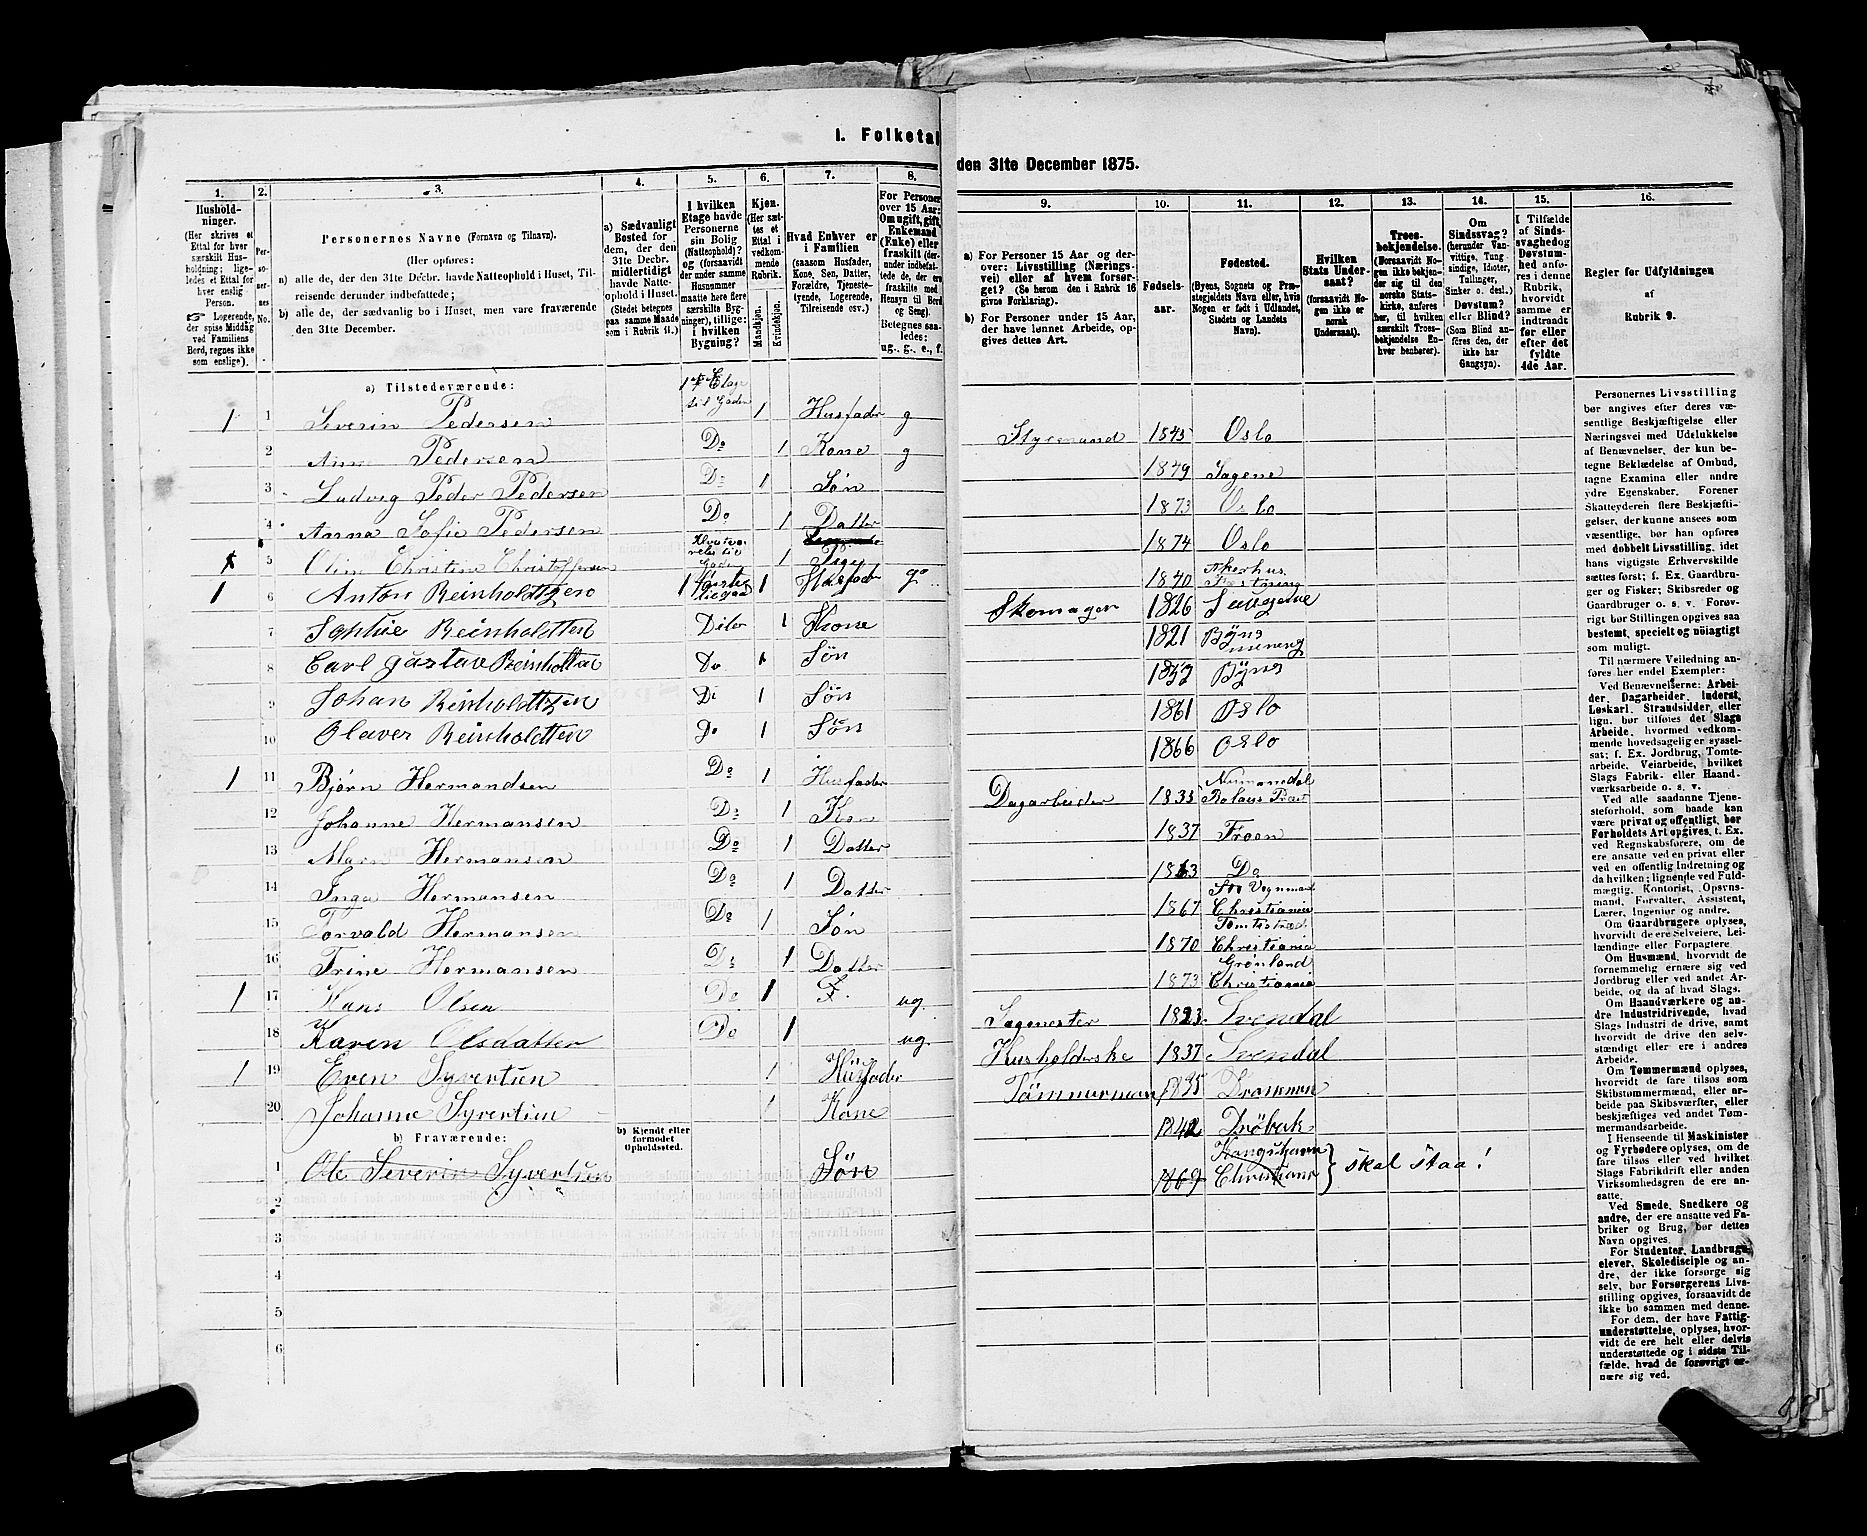 I. Folketal
den 31te December 1875.
1. 2. 3. 4. 5. 6. 7. 8. 9. 10. 11. 12. 13. 14. 15. 16.
Husholdninger.
(Her skrives et Ettal for hver særskilt Husholdning; ligeledes et Ettal for hver enslig Person.
☞ Logerende, der spise Middag ved Familiens Bord, regnes ikke som enslige).
Personernes No.
Personernes Navne (Fornavn og Tilnavn).
(Her opføres:
a) alle de, der den 31te Decbr. havde Natteophold i Huset, Tilreisende derunder indbefattede;
b) alle de, der sædvanlig bo i Huset, men vare fraværende den 31te December.
a) Sædvanligt Bosted for dem, der den 31te Decbr. midlertidigt havde Natteophold i Huset. (Stedet betegnes paa samme Maade som i Rubrik 11.)
I hvilken Etage havde Personerne sin Bolig (Natteophold)? og (forsaavidt der under samme Husnummer maatte høre flere særskilte Bygninger), tillige: i hvilken Bygning?
Kjøn. (Her sættes et Ettal i vedkommende Rubrik.
Mandkjøn. Kvindekjøn.
Hvad Enhver er i Familien (saasom Husfader, Kone, Søn, Datter, Forældre, Tjenestetyende, Logerende, Tilreisende osv.)
For Personer over 15 Aar: Om ugift, gift, Enkemand (Enke) eller fraskilt (derunder indbefattede de, der ere fraskilte med Hensyn til Bord og Seng). Betegnes saaledes: ug., g., e., f.
a) For Personer 15 Aar og derover: Livsstilling (Næringsvei) eller af hvem forsørget? (Se herom den i Rubrik 16 givne Forklaring).
b) For Personer under 15 Aar, der have lønnet Arbeide, opgives dettes Art.
Fødselsaar.
Fødested.
(Byens, Sognets og Præstegjeldets Navn eller, hvis Nogen er født i Udlandet, Stedets og Landets Navn).
Hvilken Stats Undersaat? (forsaavidt Nogen ikke er norsk Undersaat).
Troesbekjendelse.
(Forsaavidt Nogen ikke bekjender sig til den norske Statskirke, anføres her, til hvilken særskilt Troesbekjendelse Enhver henhører).
Om Sindssvag? (herunder Vanvittige, Tungsindige, Idioter, Tullinger, Sinker o. desl.) Døvstum? eller Blind? (Som Blind anføres den, der ikke har Gangsyn).
I Tilfælde af Sindssvaghed og Døvstumhed anføres i denne Rubrik, hvorvidt samme er indtraadt før eller efter det fyldte 4de Aar.
Regler for Udfyldningen af Rubrik 9.
a) Tilstedeværende:
1 1 Severin Pedersen 1ste Etage til Gaden 1 Husfader g Styrmand 1845 Oslo
2 Anne Pedersen Do 1 Kone g 1849 Sagene
3 Ludvig Peder Pedersen Do 1 Søn 1873 Oslo
4 Anna Sofie Pedersen Do 1 Datter 1874 Oslo
5 Oline Christine Christoffersen 1 Pige 1840 Akerhus Fæstning
1 6 Anton Reinholdtzen 1 Husfader g Skomager 1826
7 Sophie Reinholdtzen Dito 1 Kone 1821
8 Carl Gustav Reinholtzen Do 1 Søn
9 Johan Reinholdtzen Do 1 Søn 1861 Oslo
10 Olaver Reinholdtzen Do 1 Søn 1866 Oslo
1 11 Bjørn Hermandsen Do 1 Husfader Dagarbeider 1835 Numansdal
12 Johanne Hermansen Do 1 Kone 1837 Froen
13 Marn Hermansen Do 1 Datter 1863 Do
14 Inga Hermansen Do 1 Datter 1867 Christiania
15 Torvald Hermansen Do 1 Søn 1870 Christiania
16 Trine Hermansen Do 1 Datter 1873 Grønland Christiania
1 17 Hans Olsen Do 1 F. ug. 1823 Svendal
18 Karen Olsdatter Do 1 ug. Husholderske 1837 Svendal
1 19 Even Syvertsen 1 Husfader Tømmermand 1835 Drammen
20 Johanne Syvertsen 1 Kone 1842 Dröbak
b) Fraværende:
b) Kjendt eller formodet Opholdssted.
1 Ole Severin Syvertsen Søn 1869 Kongshavn Christiania } skal staa!
2
3
4
5
6
Personernes Livsstilling bør angives efter deres væsentlige Beskjæftigelse eller Næringsvei med Udelukkelse af Benævnelser, der kun betegne Beklædelse af Ombud, tagne Examina eller andre ydre Egenskaber. Forener Skatteyderen flere Beskjæftigelser, der kunne ansees som væsentlige, bør han opføres med dobbelt Livsstilling, idet hans vigtigste Erhvervskilde sættes først; f. Ex. Gaardbruger og Fisker; Skibsreder og Gaardbruger o. s. v. Forøvrigt bør Stillingen opgives saa bestemt, specielt og nøiagtigt som muligt.
Til nærmere Veiledning anføres her endel Exempler:
Ved Benævnelserne: Arbeider, Dagarbeider, Inderst, Løskarl, Strandsidder, eller lign. bør tilføres det Slags Arbeide, hvormed vedkommende hovedsagelig er sysselsat; f. Ex. Jordbrug, Tomtearbeide, Veiarbeide, hvilket Slags Fabrik- eller Haandværksarbeide o. s. v.
Ved alle saadanne Tjenesteforhold, som baade kan være privat og offentligt, bør Forholdets Art opgives, t. Ex. ved Regnskabsførere, om de ere ansatte ved en privat eller ved en offentlig Indretning og da hvilken; lignende ved Fuldmægtig, Kontorist, Opsynsmand, Forvalter, Assistent, Lærer, Ingeniør og andre.
Om Gaardbrugere oplyses, hvorvidt de ere Selveiere, Leilændinge eller Forpagtere.
Om Husmænd, hvorvidt de fornemmelig ernære sig ved Jordbrug eller ved andet Arbeide, og da af hvad Slags.
Om Haandværkere og andre Industridrivende, hvad Slags Industri de drive, samt hvorvidt de drive den selvstændigt eller ere i andres Arbeide.
Om Tømmermænd oplyses, hvorvidt de fare tilsøs som Skibstømmermænd, eller arbeide paa Skibsværfter, eller beskjæftiges ved andet Tømmermandsarbeide.
I Henseende til Maskinister og Fyrbødere oplyses, om de fare tilsøs eller ved hvilket Slags Fabrikdrift eller anden Virksomhedsgren de ere ansatte.
Ved Smede, Snedkere og andre, der ere ansatte ved Fabriker og Brug, bør dettes Navn opgives.
For Studenter, Landbrugselever, Skoledisciple og andre, der ikke forsørge sig selv, bør Forsørgerens Livsstilling opgives, forsaavidt de ikke bo sammen med denne.
For dem, der have Fattigunderstøttelse, oplyses, hvorvidt de ere helt eller delvis understøttede og i sidste Tilfælde, hvad de forøvrigt ernære sig ved.